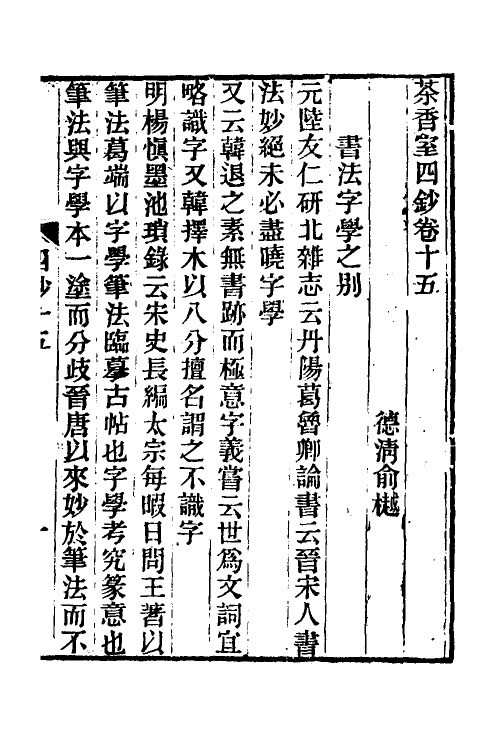 茶香室四鈔卷十五
德淸俞樾
書法字學之別
元陸友仁硏北雜志云丹陽葛魯卿論書云晉宋人書
法妙絕未必盡曉字學
又云韓退之素無書跡而極意字義嘗云世爲文詞宜
略識字又韓擇木以八分擅名謂之不識字
明楊愼墨池瑣錄云宋史長編太宗每暇日問王著以
筆法葛端以字學筆法臨摹古帖也字學考究篆意也
筆法與字學本一塗而分歧晉唐以來妙於筆法而不
四鈔十五
一